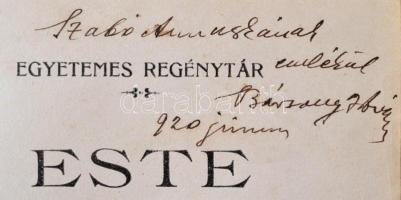 Szabó Annuskának
EGYETEMES REGÉNYTÁR emlékül
Bársony István
920 június
ESTE